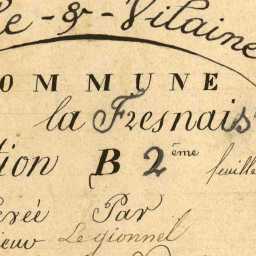 le-&-Vilaine
OMMUNE
la Fresnais
tion B 2ème feuille
Par
Legionnel